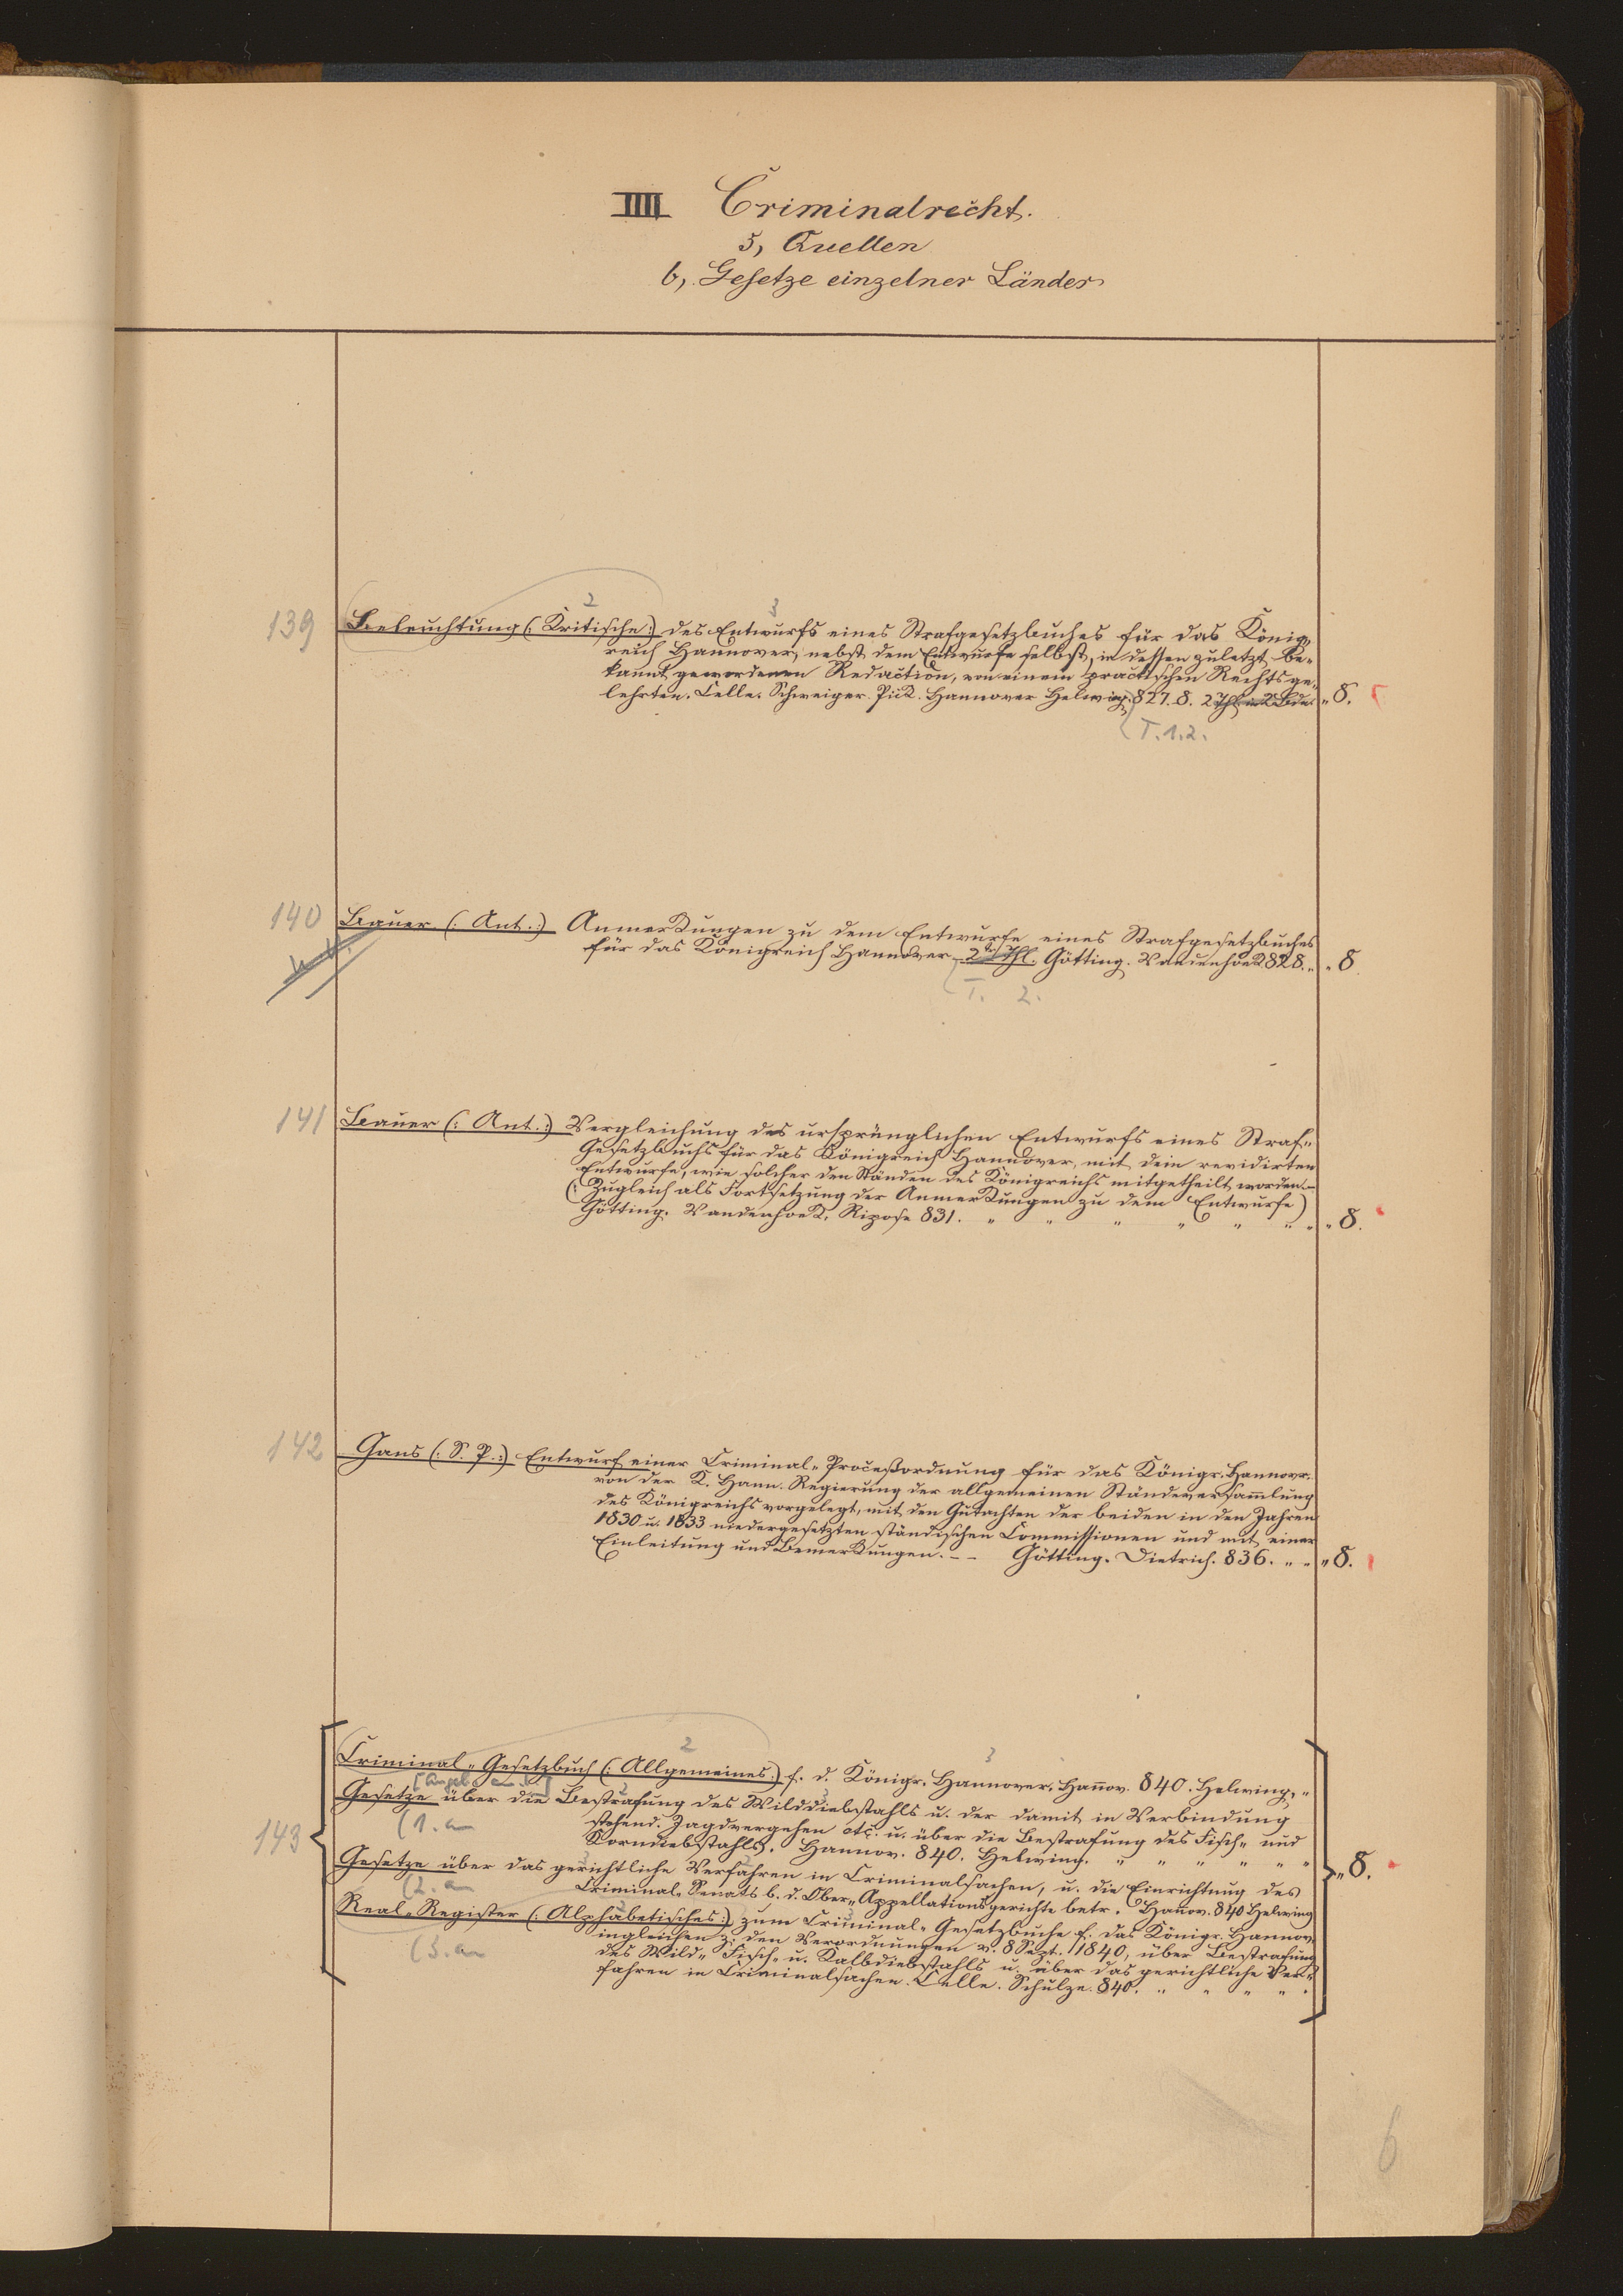 IIII Criminalrecht.
5, Quellen
b, Gesetze einzelner Länder
2 3
139 Beleuchtung (: Kritische :) des Entwurfs eines Strafgesetzbuches für das König-
reich Hannover, nebst dem Entwurfe selbst, in dessen zuletzt be-
kannt gewordenen Redaction, von einem practischen Rechtsge-
lehrten. Celle. Schweiger. Pick. Hannover Helwing. 827. 8. 2 Thl. in 2 Bdn. „ 8.
(T. 1.2.
140 Bauer (: Ant. :) Anmerkungen zu dem Entwurfe eines Strafgesetzbuches
für das Königreich Hannover. 2r Thl. Götting. Vandenhoek 828. „ „ 8
(T. 2.
141 Bauer (: Ant. :) Vergleichung des ursprünglichen Entwurfs eines Straf-
Gesetzbuchs für das Königreich Hannover, mit dem revidirten
Entwurfe, wie solcher den Ständen des Königreichs mitgetheilt worden. –
(: Zugleich als Fortsetzung der Anmerkungen zu dem Entwurfe)
Götting. Vandenhoek. 831. „ „ „ „ „ „ „ „ 8.
142 Gans (: S. P. :) Entwurf einer Criminal-Proceßordnung für das Königr. Hannovr.
von der K. Hann. Regierung der allgemeinen Ständeversammlung
des Königreichs vorgelegt, mit den Gutachten der beiden in den Jahren
1830 u. 1833 niedergesetzten ständischen Commissionen und mit einer
Einleitung und Bemerkungen. – – Götting. Dietrich. 836. „ „ „ 8.
2 3
Criminal-Gesetzbuch (: Allgemeines :) f. d. Königr. Hannover. Hannov. 840. Helwing. „
Gesetze über die Bestrafung des Wilddiebstahls u. der damit in Verbindung
(1. an
stehend. Jagdvergehen etc. u. über die Bestrafung des Fisch- und
143 Korndiebstahls. Hannov. 840. Helwing. „ „ „ „ „ „
Gesetze über das gerichtliche Verfahren in Criminalsachen, u. die Einrichtung des „ 8.
(2. an
Criminal-Senats b. d. Ober-Appellationsgerichte betr. Hannov. 840 Helwing
Real-Register (: Alphabetisches :) zum Criminal-Gesetzbuche f. das Königr. Hannov.
(3. an
ingleichen z. den Verordnungen v. 8 Sept. 1840, über Bestrafung
des Wild- Fisch- u. Kalbdiebstahls u. über das gerichtliche Ver-
fahren in Criminalsachen. Celle. Schulze. 840. „ „ „ „ „
6